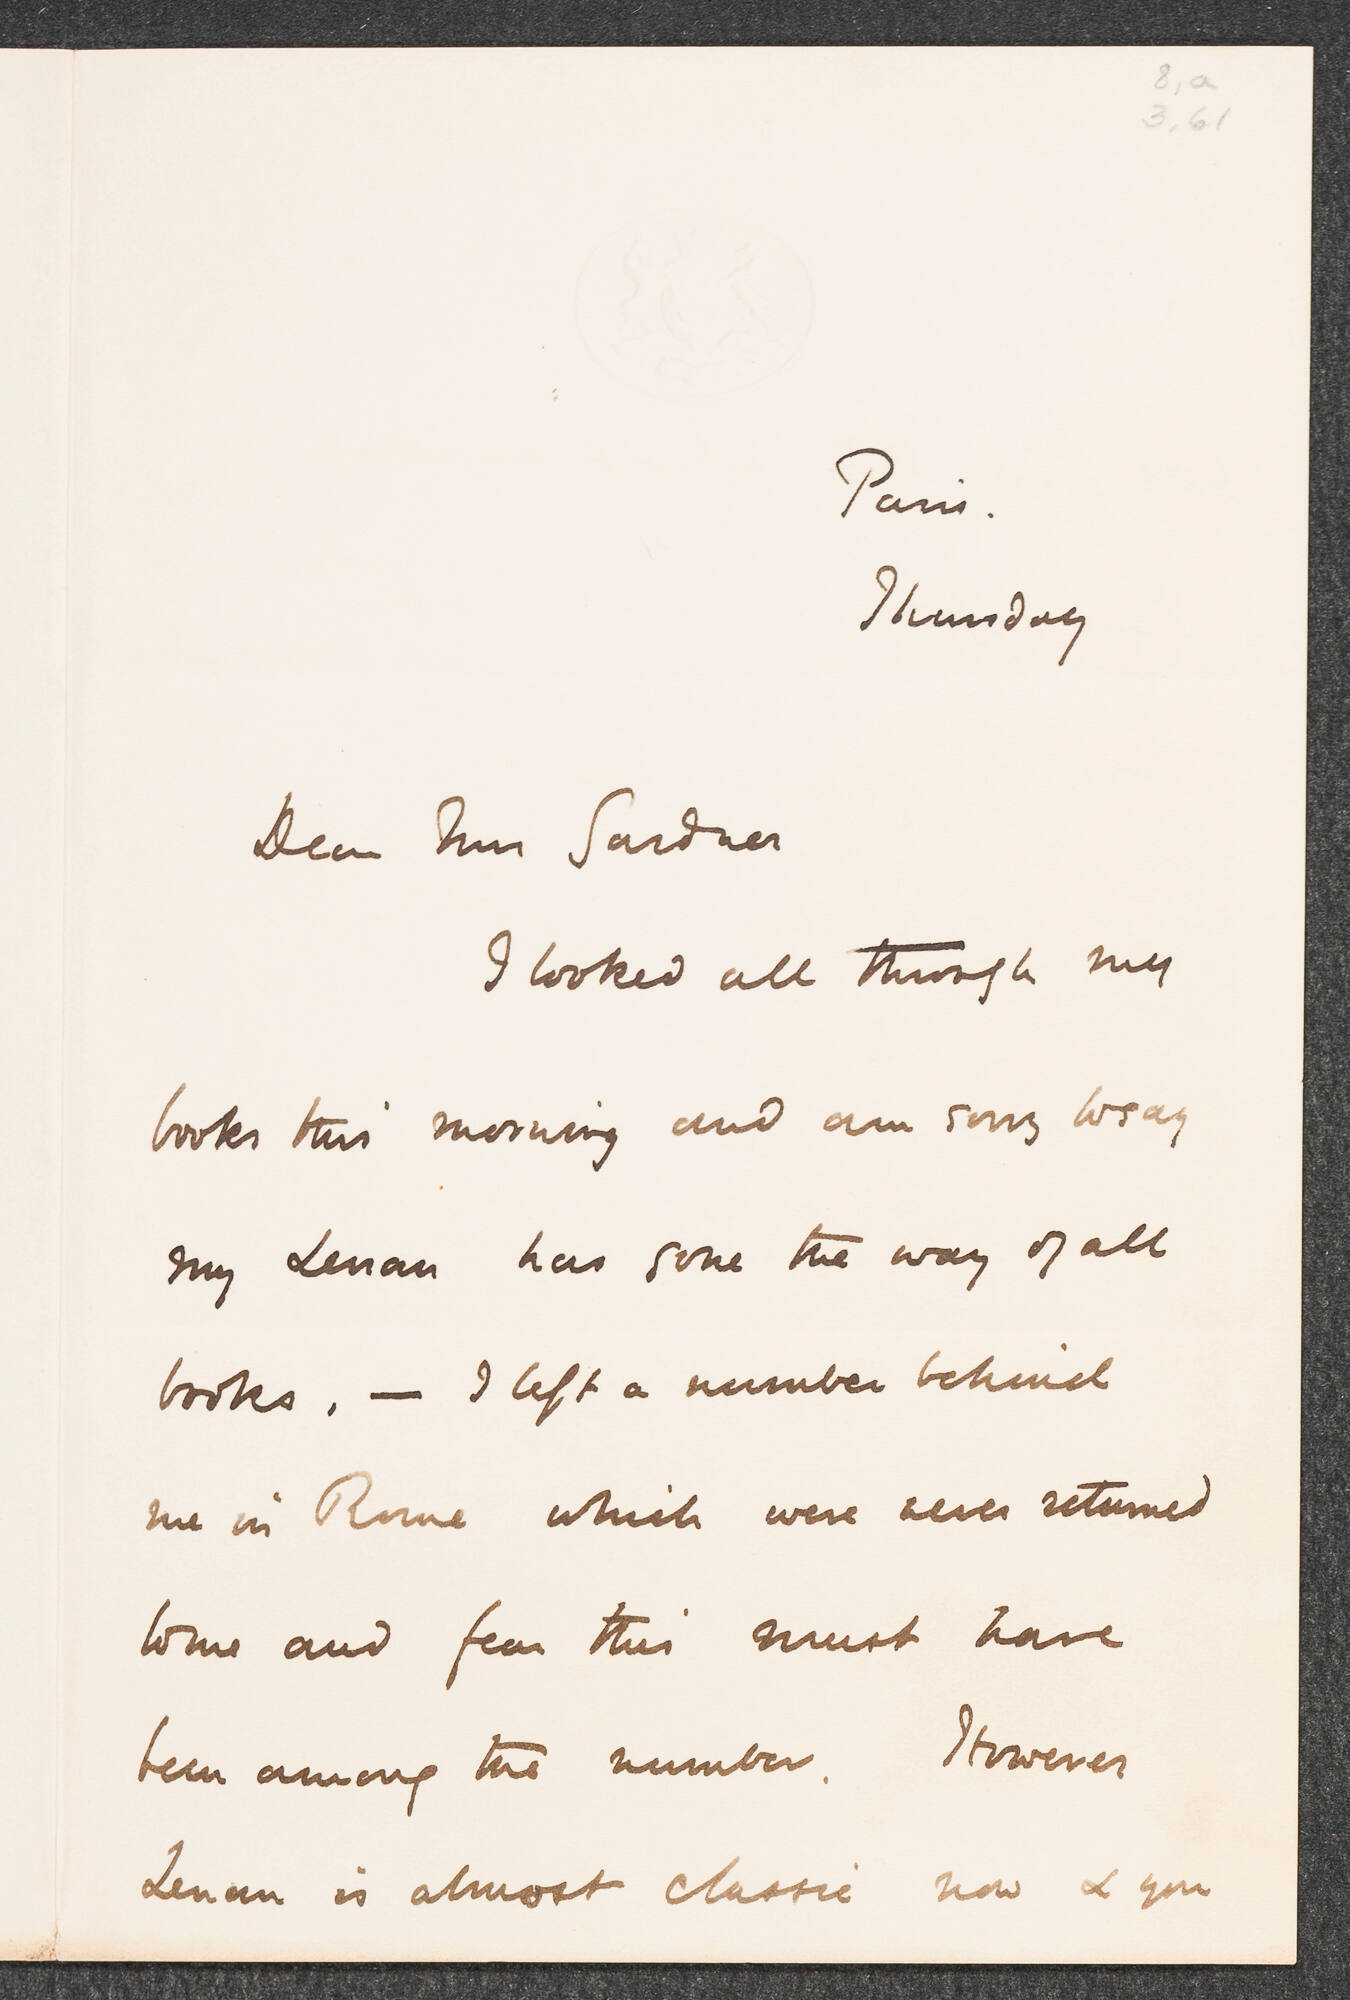 8,a
3,61
Paris.
Thursday
Dear Mrs Gardner
I looked all through my
books this morning and am sorry to say
my Lenau has gone the way of all
books, — I left a number behind
me in Rome which were never returned
to me and fear this must have
been among the number. However
Lenau is almost classic now & you